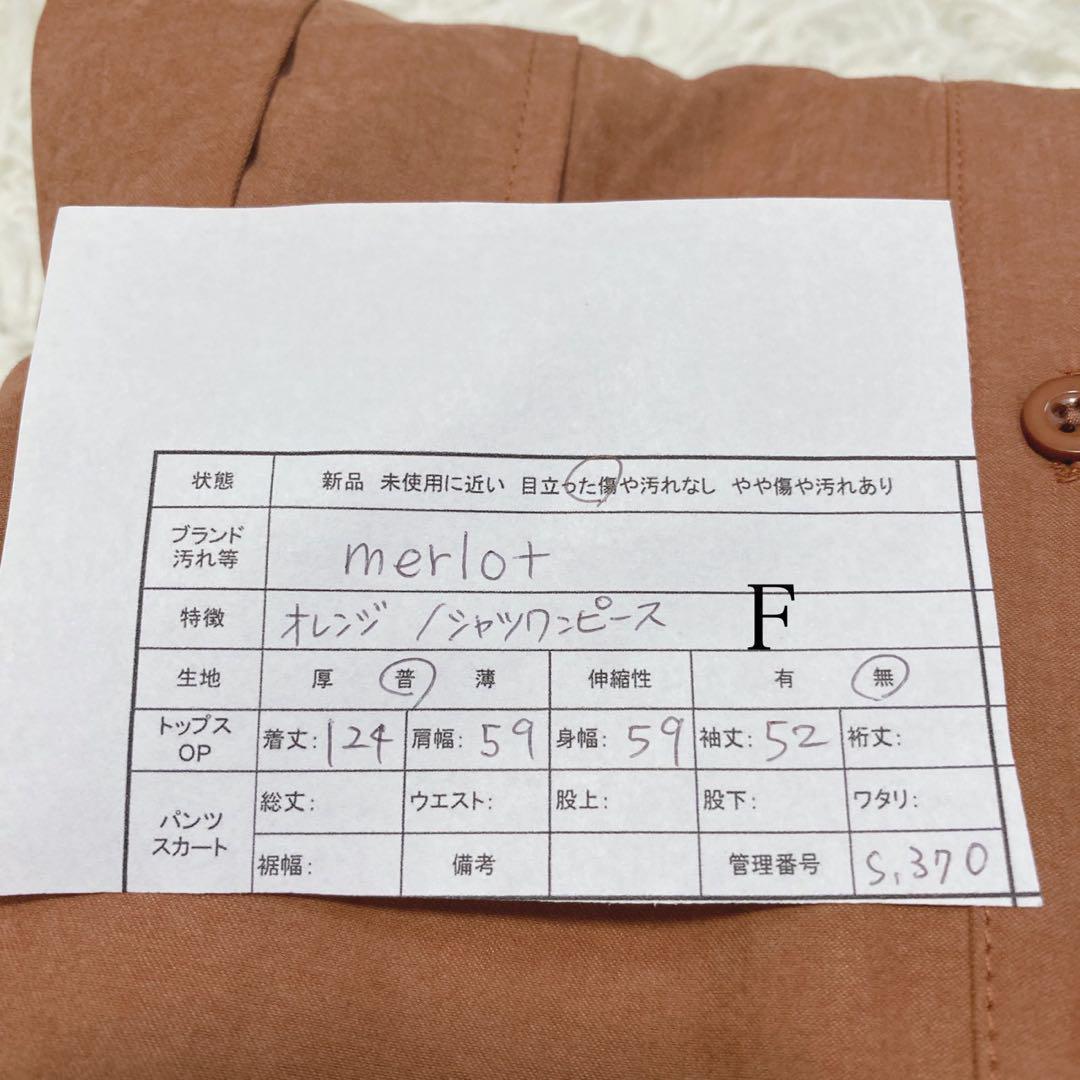 状態 新品 未使用に近い 目立った傷や汚れなし やや傷や汚れあり
ブランド
汚れ等 merlot
特徴 オレンジ /シャツワンピース F
生地 厚 普 薄 伸縮性 有 無
トップス
OP 着丈:124 肩幅:59 身幅:59 袖丈:52 裄丈:
パンツ
スカート 総丈: ウエスト: 股上: 股下: ワタリ:
裾幅: 備考 管理番号 S,370